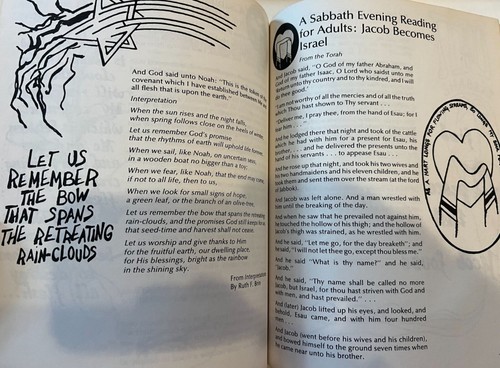 And God said unto Noah: "This is the token of the
covenant which I have established between Me and
all flesh that is upon the earth."
Interpretation
When the sun rises and the night falls,
when spring follows close on the heels of winter,
Let us remember God's promise
that the rhythms of earth will uphold life forever.
When we sail, like Noah, on uncertain seas,
in a wooden boat no bigger than a toy,
When we fear, like Noah, that the end may come
if not to all life, then to us,
When we look for small signs of hope,
a green leaf, or the branch of an olive tree,
Let us remember the bow that spans the retreating
rain-clouds, and the promises God still keeps
that seed-time and harvest shall not cease.
Let us worship and give thanks to Him
for the fruitful earth, our dwelling place,
for His blessings, bright as the rainbow
in the shining sky.
From Interpretation
By Ruth F.
LET US
REMEMBER
THE BOW
THAT SPANS
THE RETREATING
RAIN-CLOUDS
A Sabbath Evening Reading
for Adults: Jacob Becomes
Israel
From the Torah
And Jacob said, "O God of my father Abraham, and
God of my father Isaac, O Lord who saidst unto me
'Return unto thy country and to thy kindred, and I will
do thee good.'
I am not worthy of all the mercies and of all the truth
which Thou hast shown to Thy servant . . .
"Deliver me, I pray thee, from the hand of Esau; for I
fear him . . ."
And he lodged there that night and took of the cattle
which he had with him for a present for Esau, his
brother. . . . and he delivered the presents unto the
hand of his servants . . . to appease Esau . . .
And he rose up that night, and took his two wives and
his two handmaidens and his eleven children, and he
took them and sent them over the stream (at the ford
of Jabbok).
And Jacob was left alone. And a man wrestled with
him until the breaking of the day.
And when he saw that he prevailed not against him,
he touched the hollow of his thigh; and the hollow of
Jacob's thigh was strained, as he wrestled with him.
And he said, "Let me go, for the day breaketh"; and
he said, "I will not let thee go, except thou bless me."
And he said "What is thy name?" and he said,
"Jacob."
And he said, "Thy name shall be called no more
Jacob, but Israel, for thou hast striven with God and
with men, and hast prevailed." . . .
And (later) Jacob lifted up his eyes, and looked, and
behold, Esau came, and with him four hundred
men . . .
And Jacob (went before his wives and his children),
and bowed himself to the ground seven times when
he came near unto his brother.
AS A HART LONGS FOR FLOWING STREAMS, SO LONGS